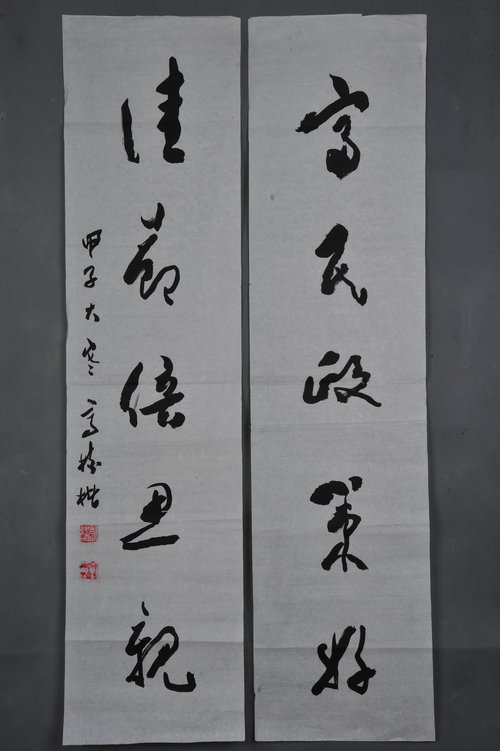 富民政策好
佳节倍思親
甲子大寒高